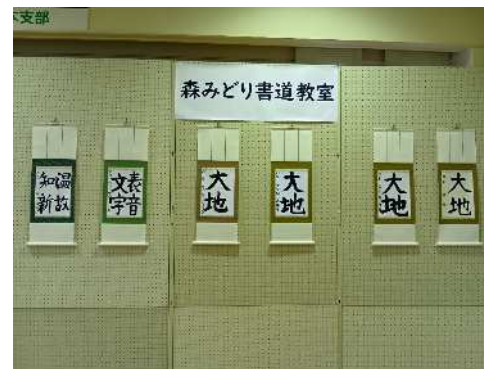 支部
森みどり書道教室
温故
知新
表音
文字
大地
大地
大地
大地